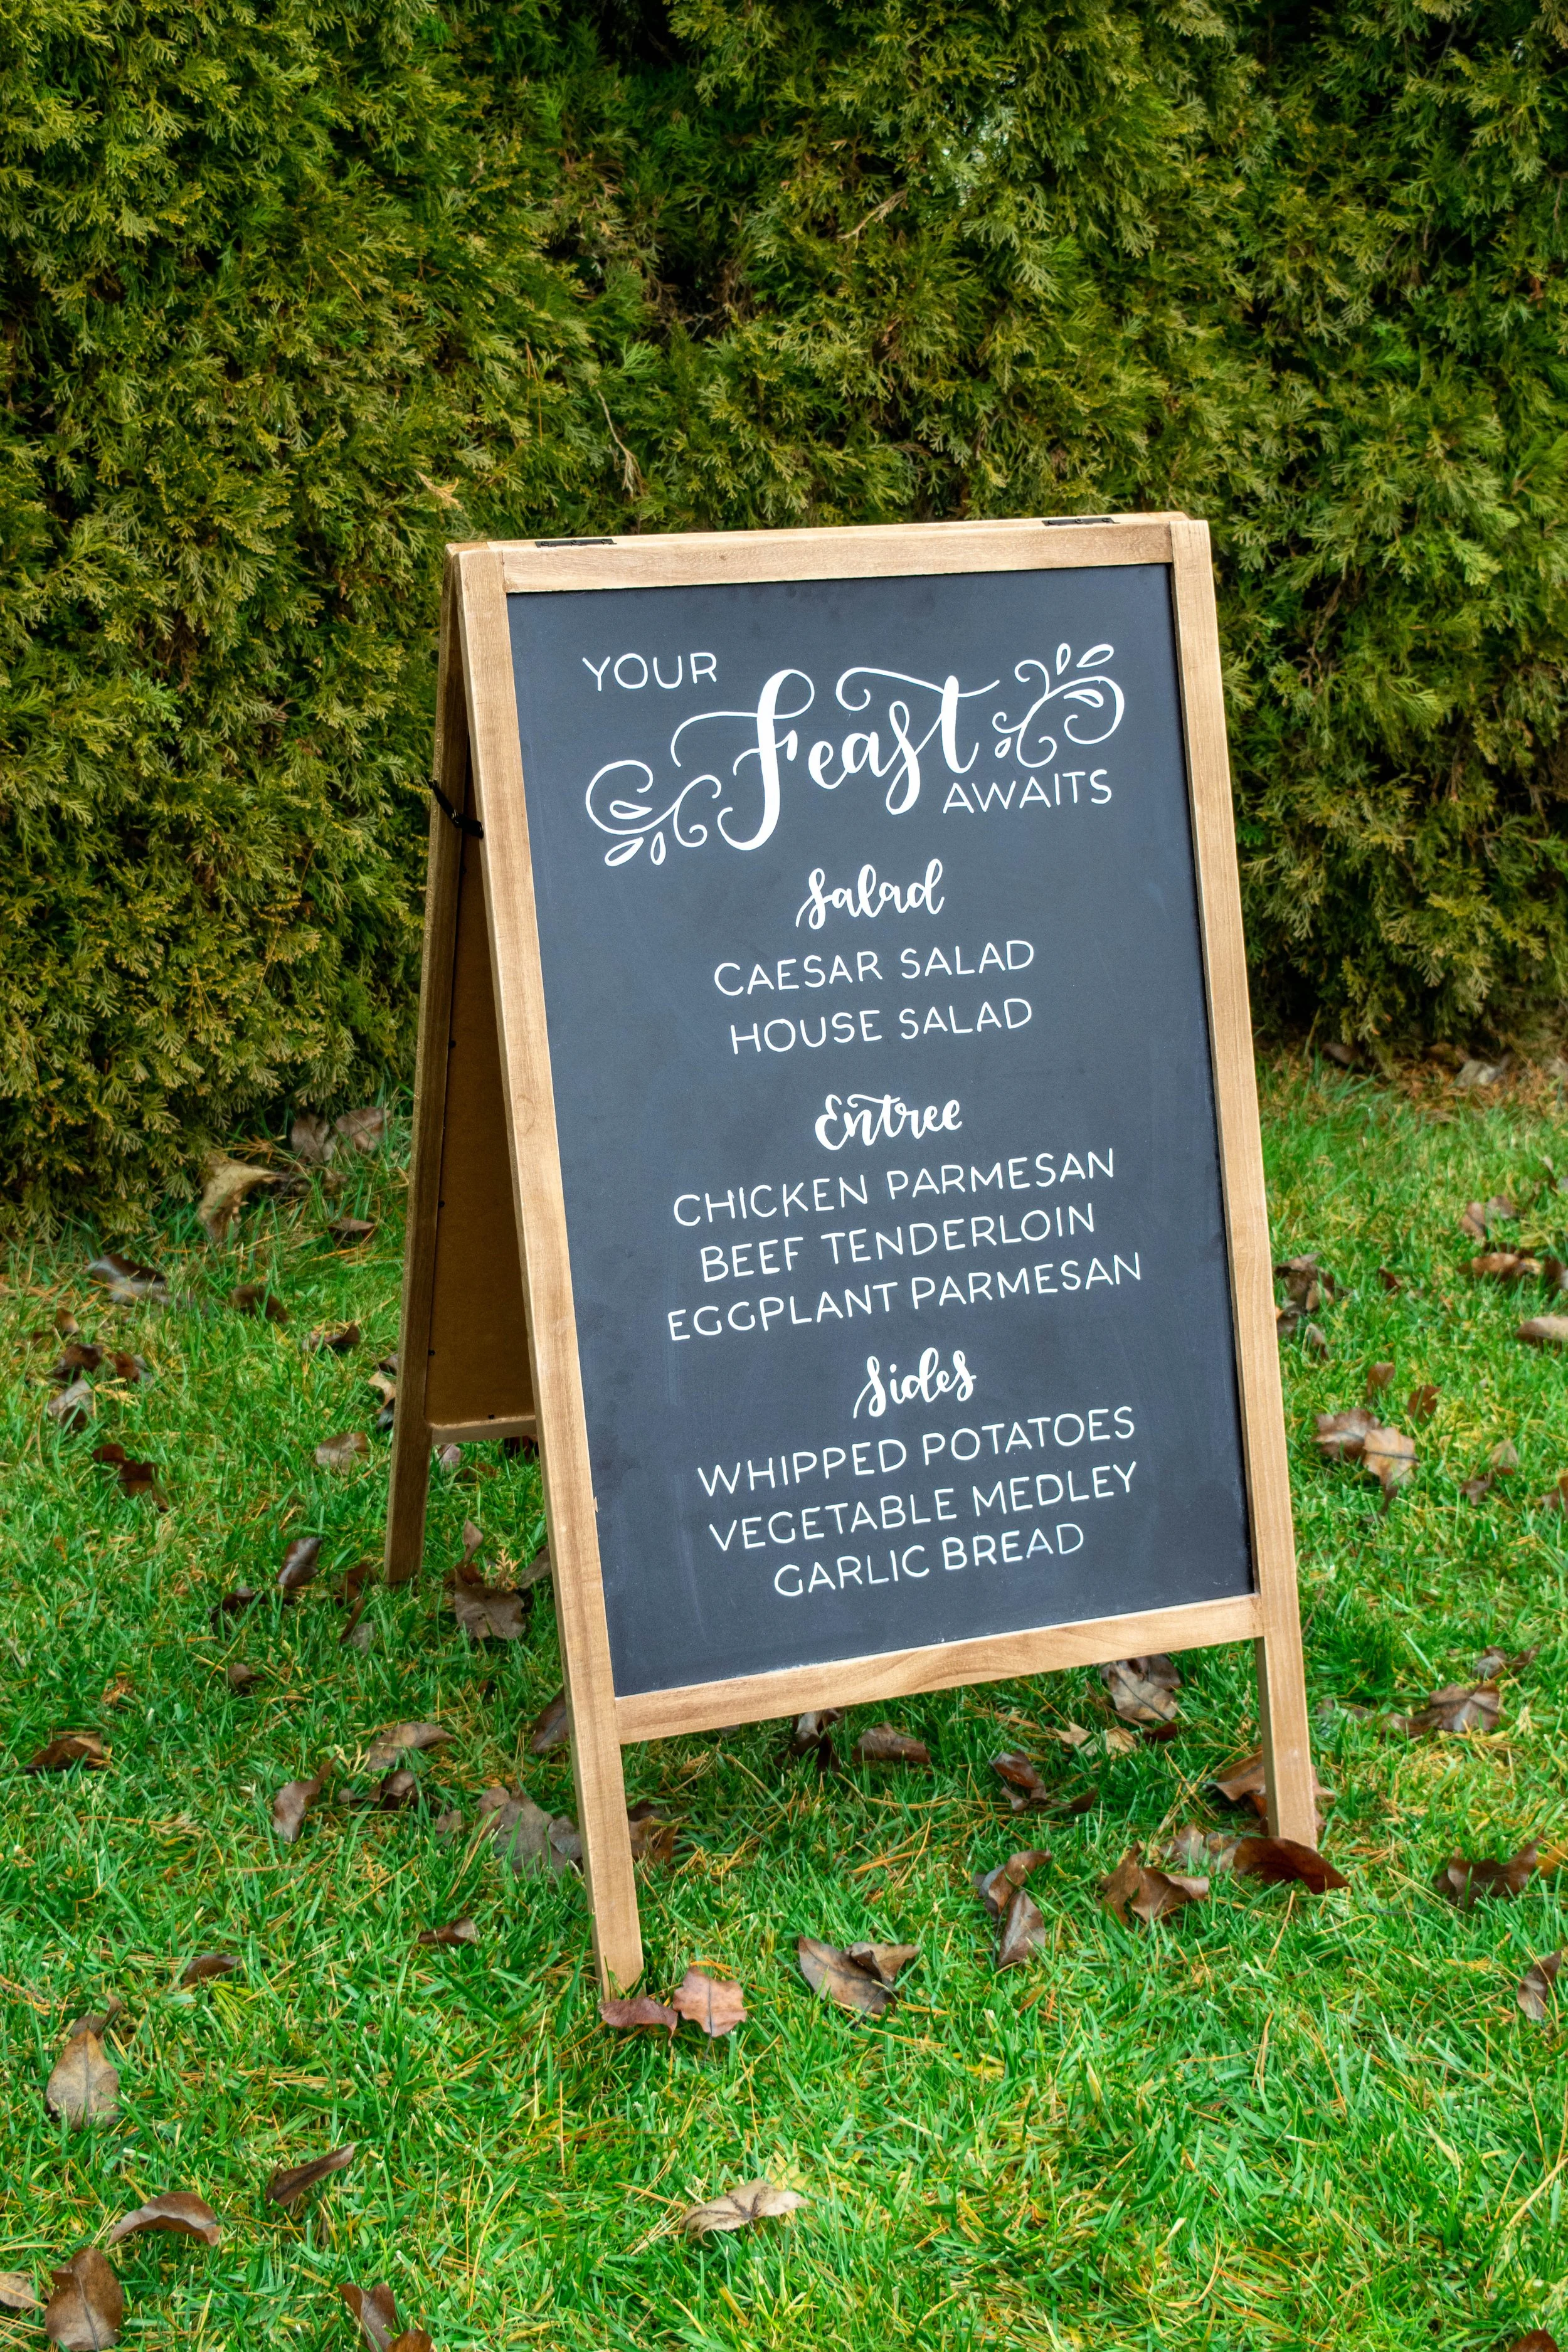 YOUR
Feast
AWAITS
Salad
CAESAR SALAD
HOUSE SALAD
Entree
CHICKEN PARMESAN
BEEF TENDERLOIN
EGGPLANT PARMESAN
Sides
WHIPPED POTATOES
VEGETABLE MEDLEY
GARLIC BREAD